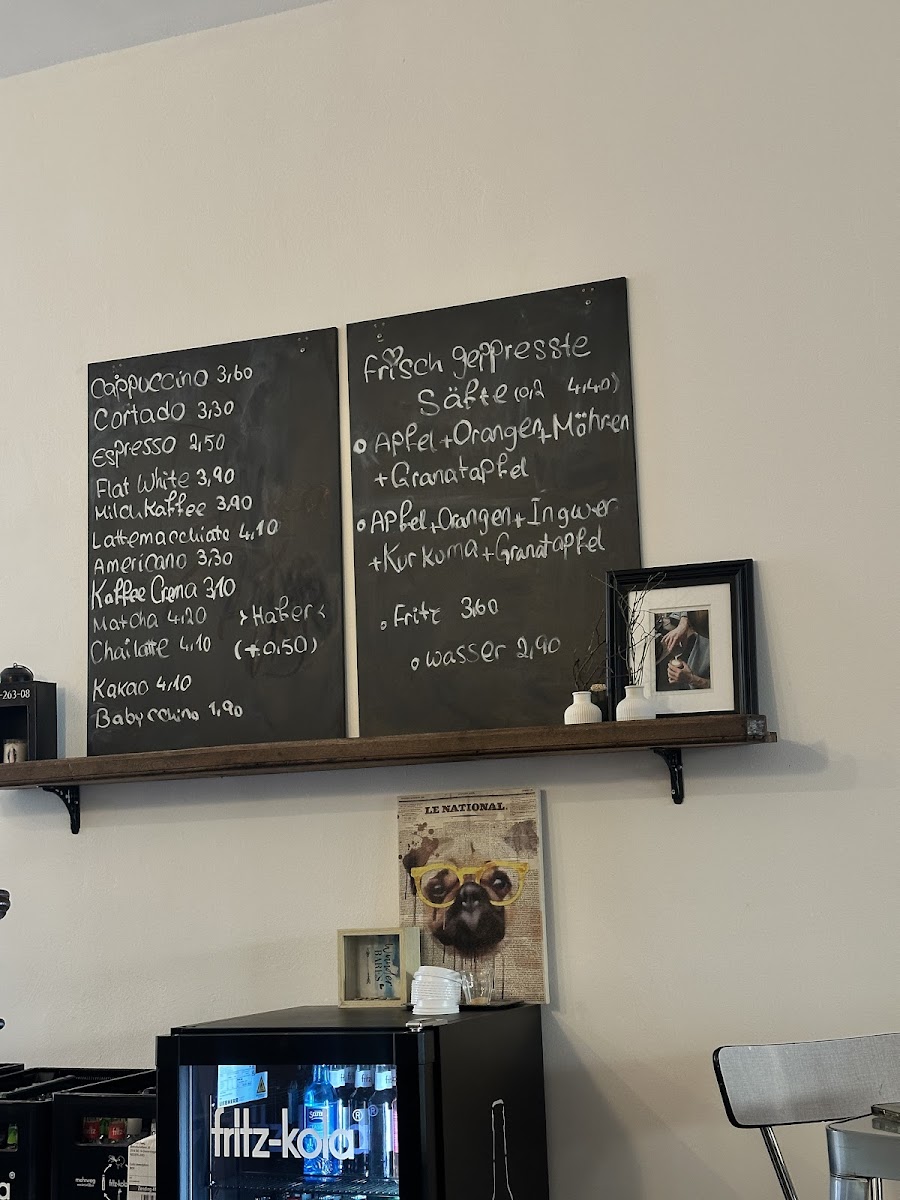 Cappuccino 3,60
Cortado 3,30
Espresso 2,50
Flat White 3,90
Milchkaffee 3,90
Lattemacchiato 4,10
Americano 3,30
Kaffee Crema 3,10
Matcha 4,20 >Hafer<
Chai latte 4,10 (+0,50)
Kakao 4,10
Babyccino 1,90
frisch geppresste
Säfte (0,2 4,40)
Apfel+Orangen+Möhren
+Granatapfel
Apfel+Orangen+Ingwer
+Kurkuma+Granatapfel
Fritz 3,60
wasser 2,90
-263-08
LE NATIONAL.
wunder
BARES
fritz-kola®